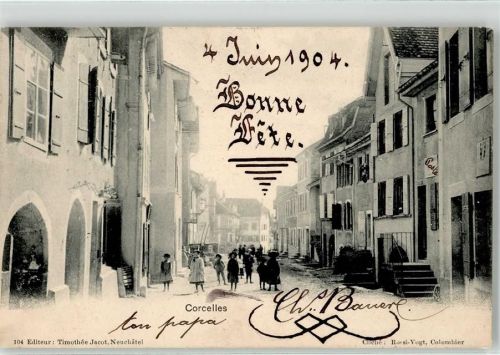 4 Juin 1904.
Bonne
Fête.
Corcelles
ton papa
104 Editeur: Timothée Jacot, Neuchâtel
Cliché: Rossi-Vogt, Colombier